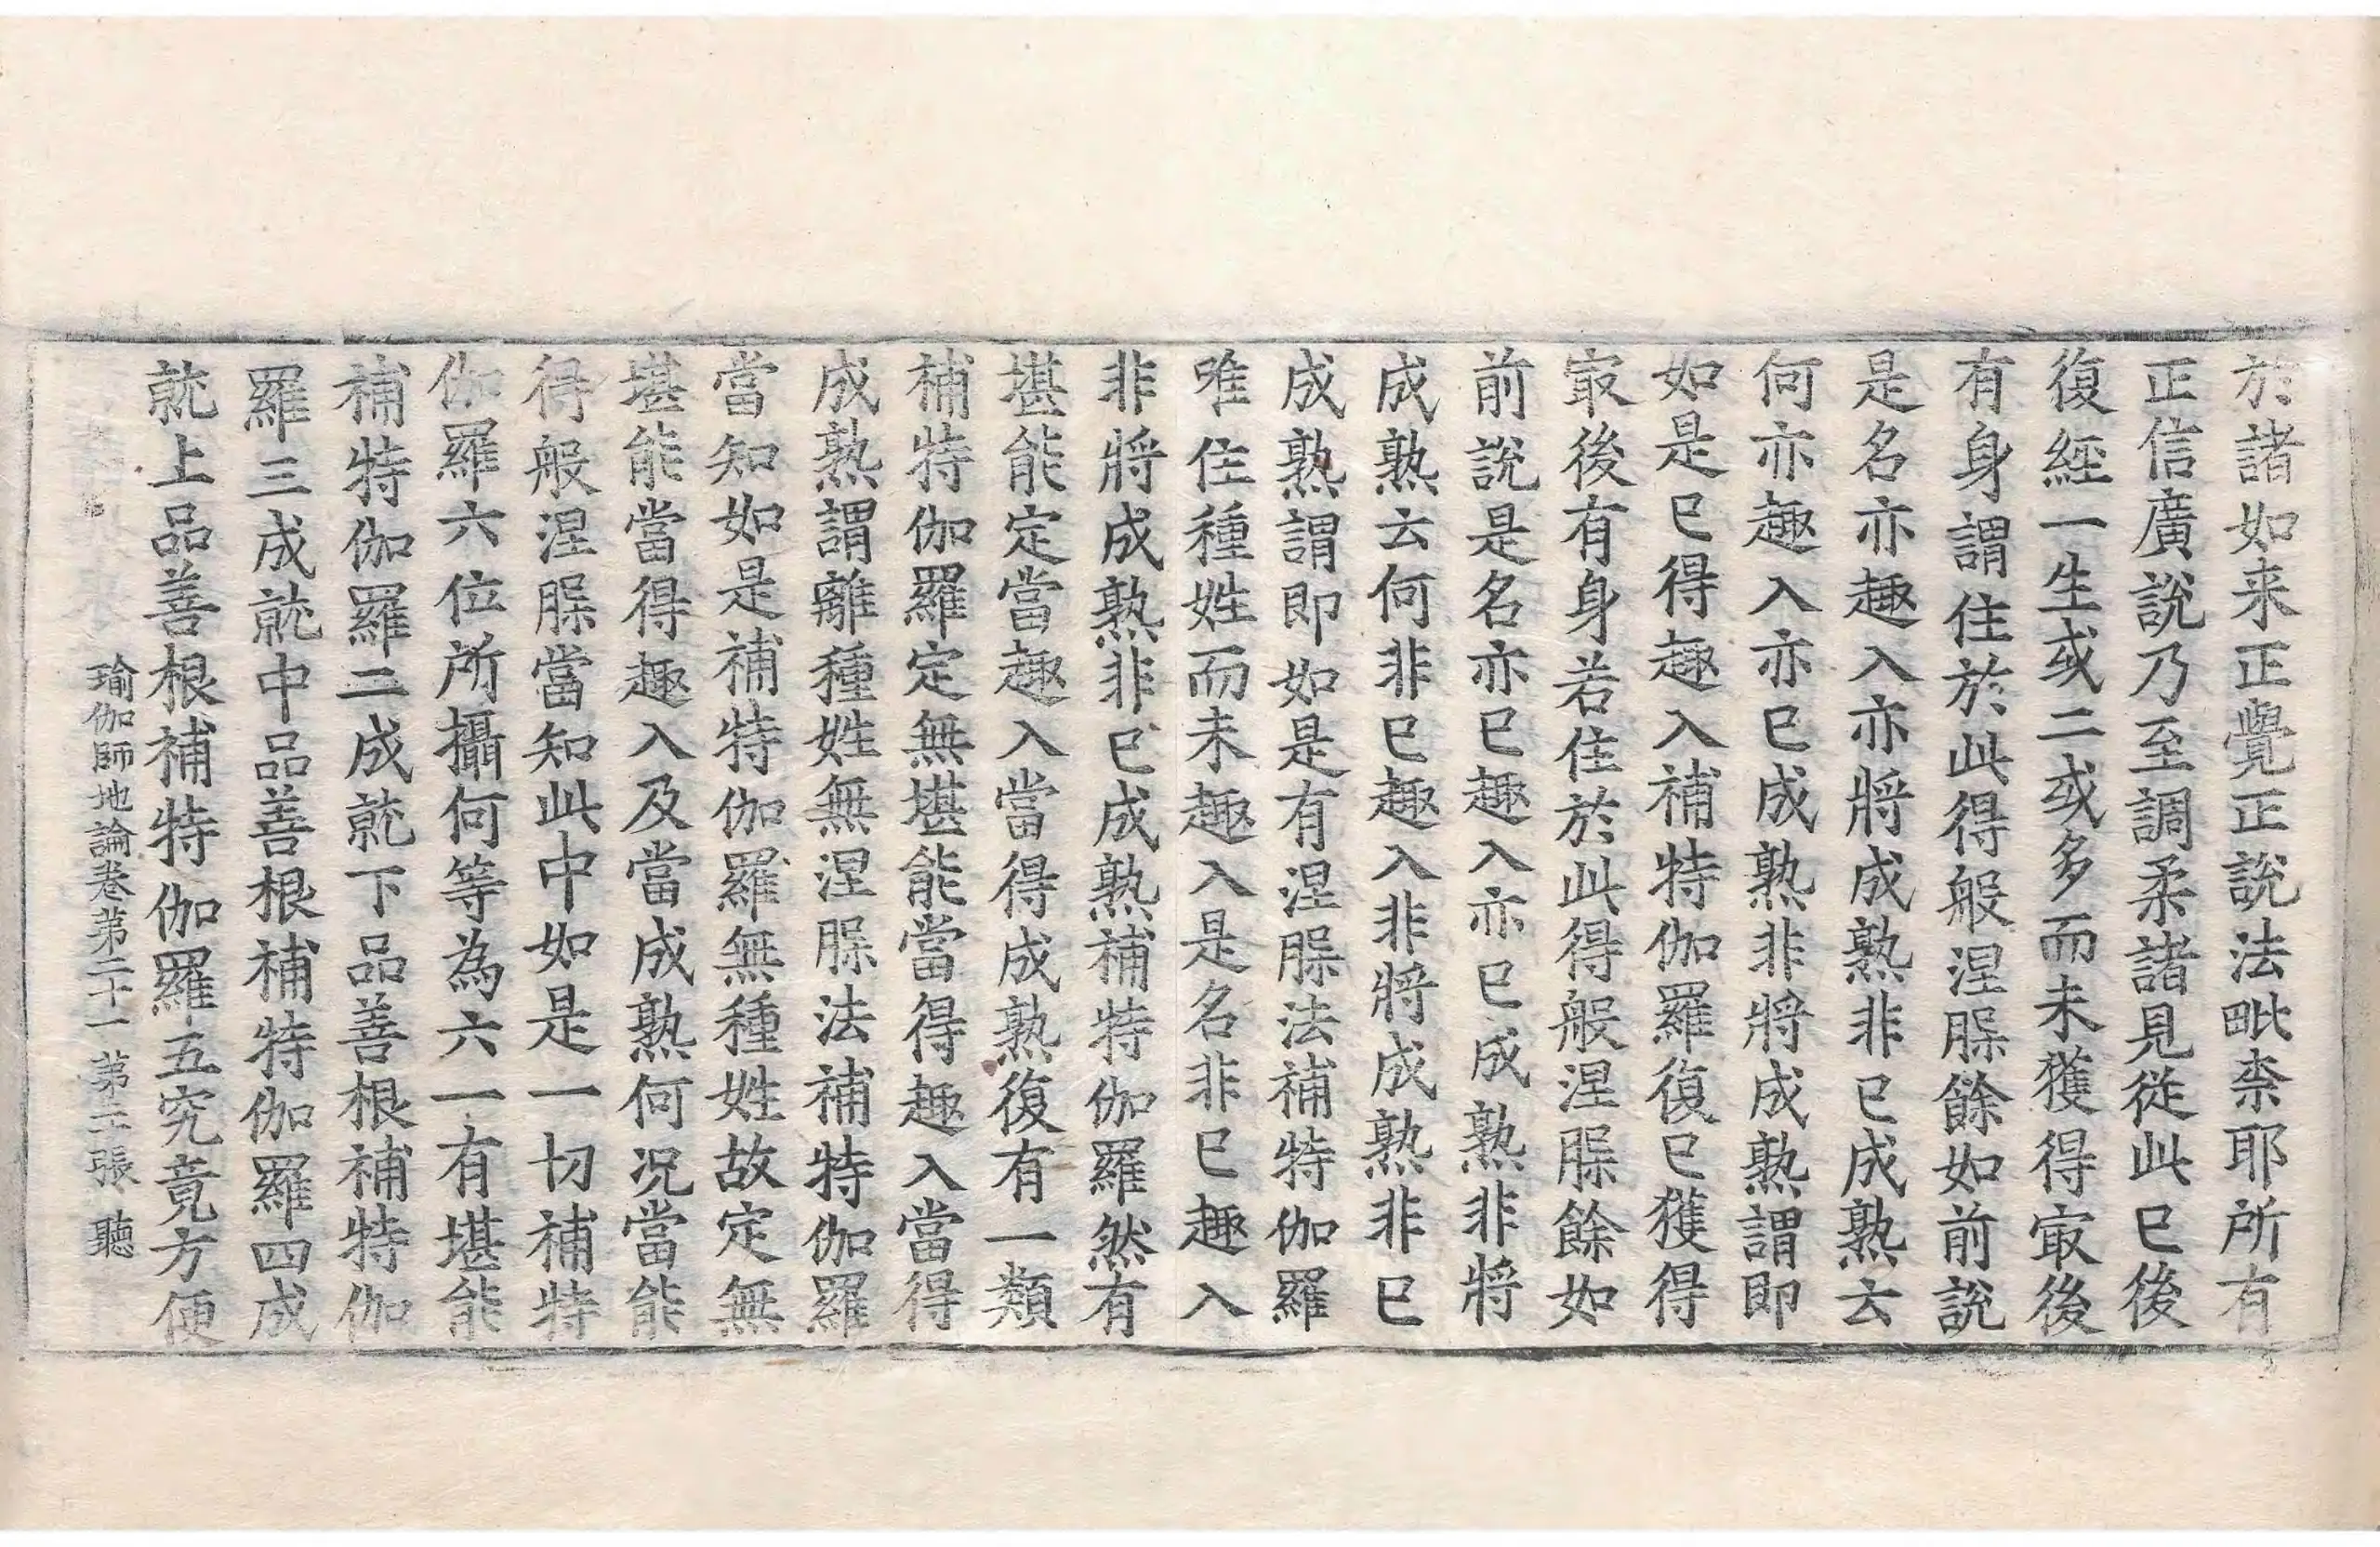 於諸如来正覺正說法毗柰耶所有
正信廣說乃至調柔諸見從此已後
復經一生或二或多而未獲得㝡後
有身謂住於此得般涅脲餘如前說
是名亦趣入亦將成熟非已成熟云
何亦趣入亦已成熟非將成熟謂即
如是已得趣入補特伽羅復已獲得
㝡後有身若住於此得般涅脲餘如
前說是名亦已趣入亦已成熟非將
成熟云何非已趣入非將成熟非已
成熟謂即如是有涅脲法補特伽羅
唯住種姓而未趣入是名非已趣入
非將成熟非已成熟補特伽羅然有
堪能定當趣入當得成熟復有一類
補特伽羅定無堪能當得趣入當得
成熟謂離種姓無涅脲法補特伽羅
當知如是補特伽羅無種姓故定無
堪能當得趣入及當成熟何況當能
得般涅脲當知此中如是一切補特
伽羅六位所攝何等為六一有堪能
補特伽羅二成就下品善根補特伽
羅三成就中品善根補特伽羅四成
就上品善根補特伽羅五究竟方便
瑜伽師地論卷第二十一 第二張 聽